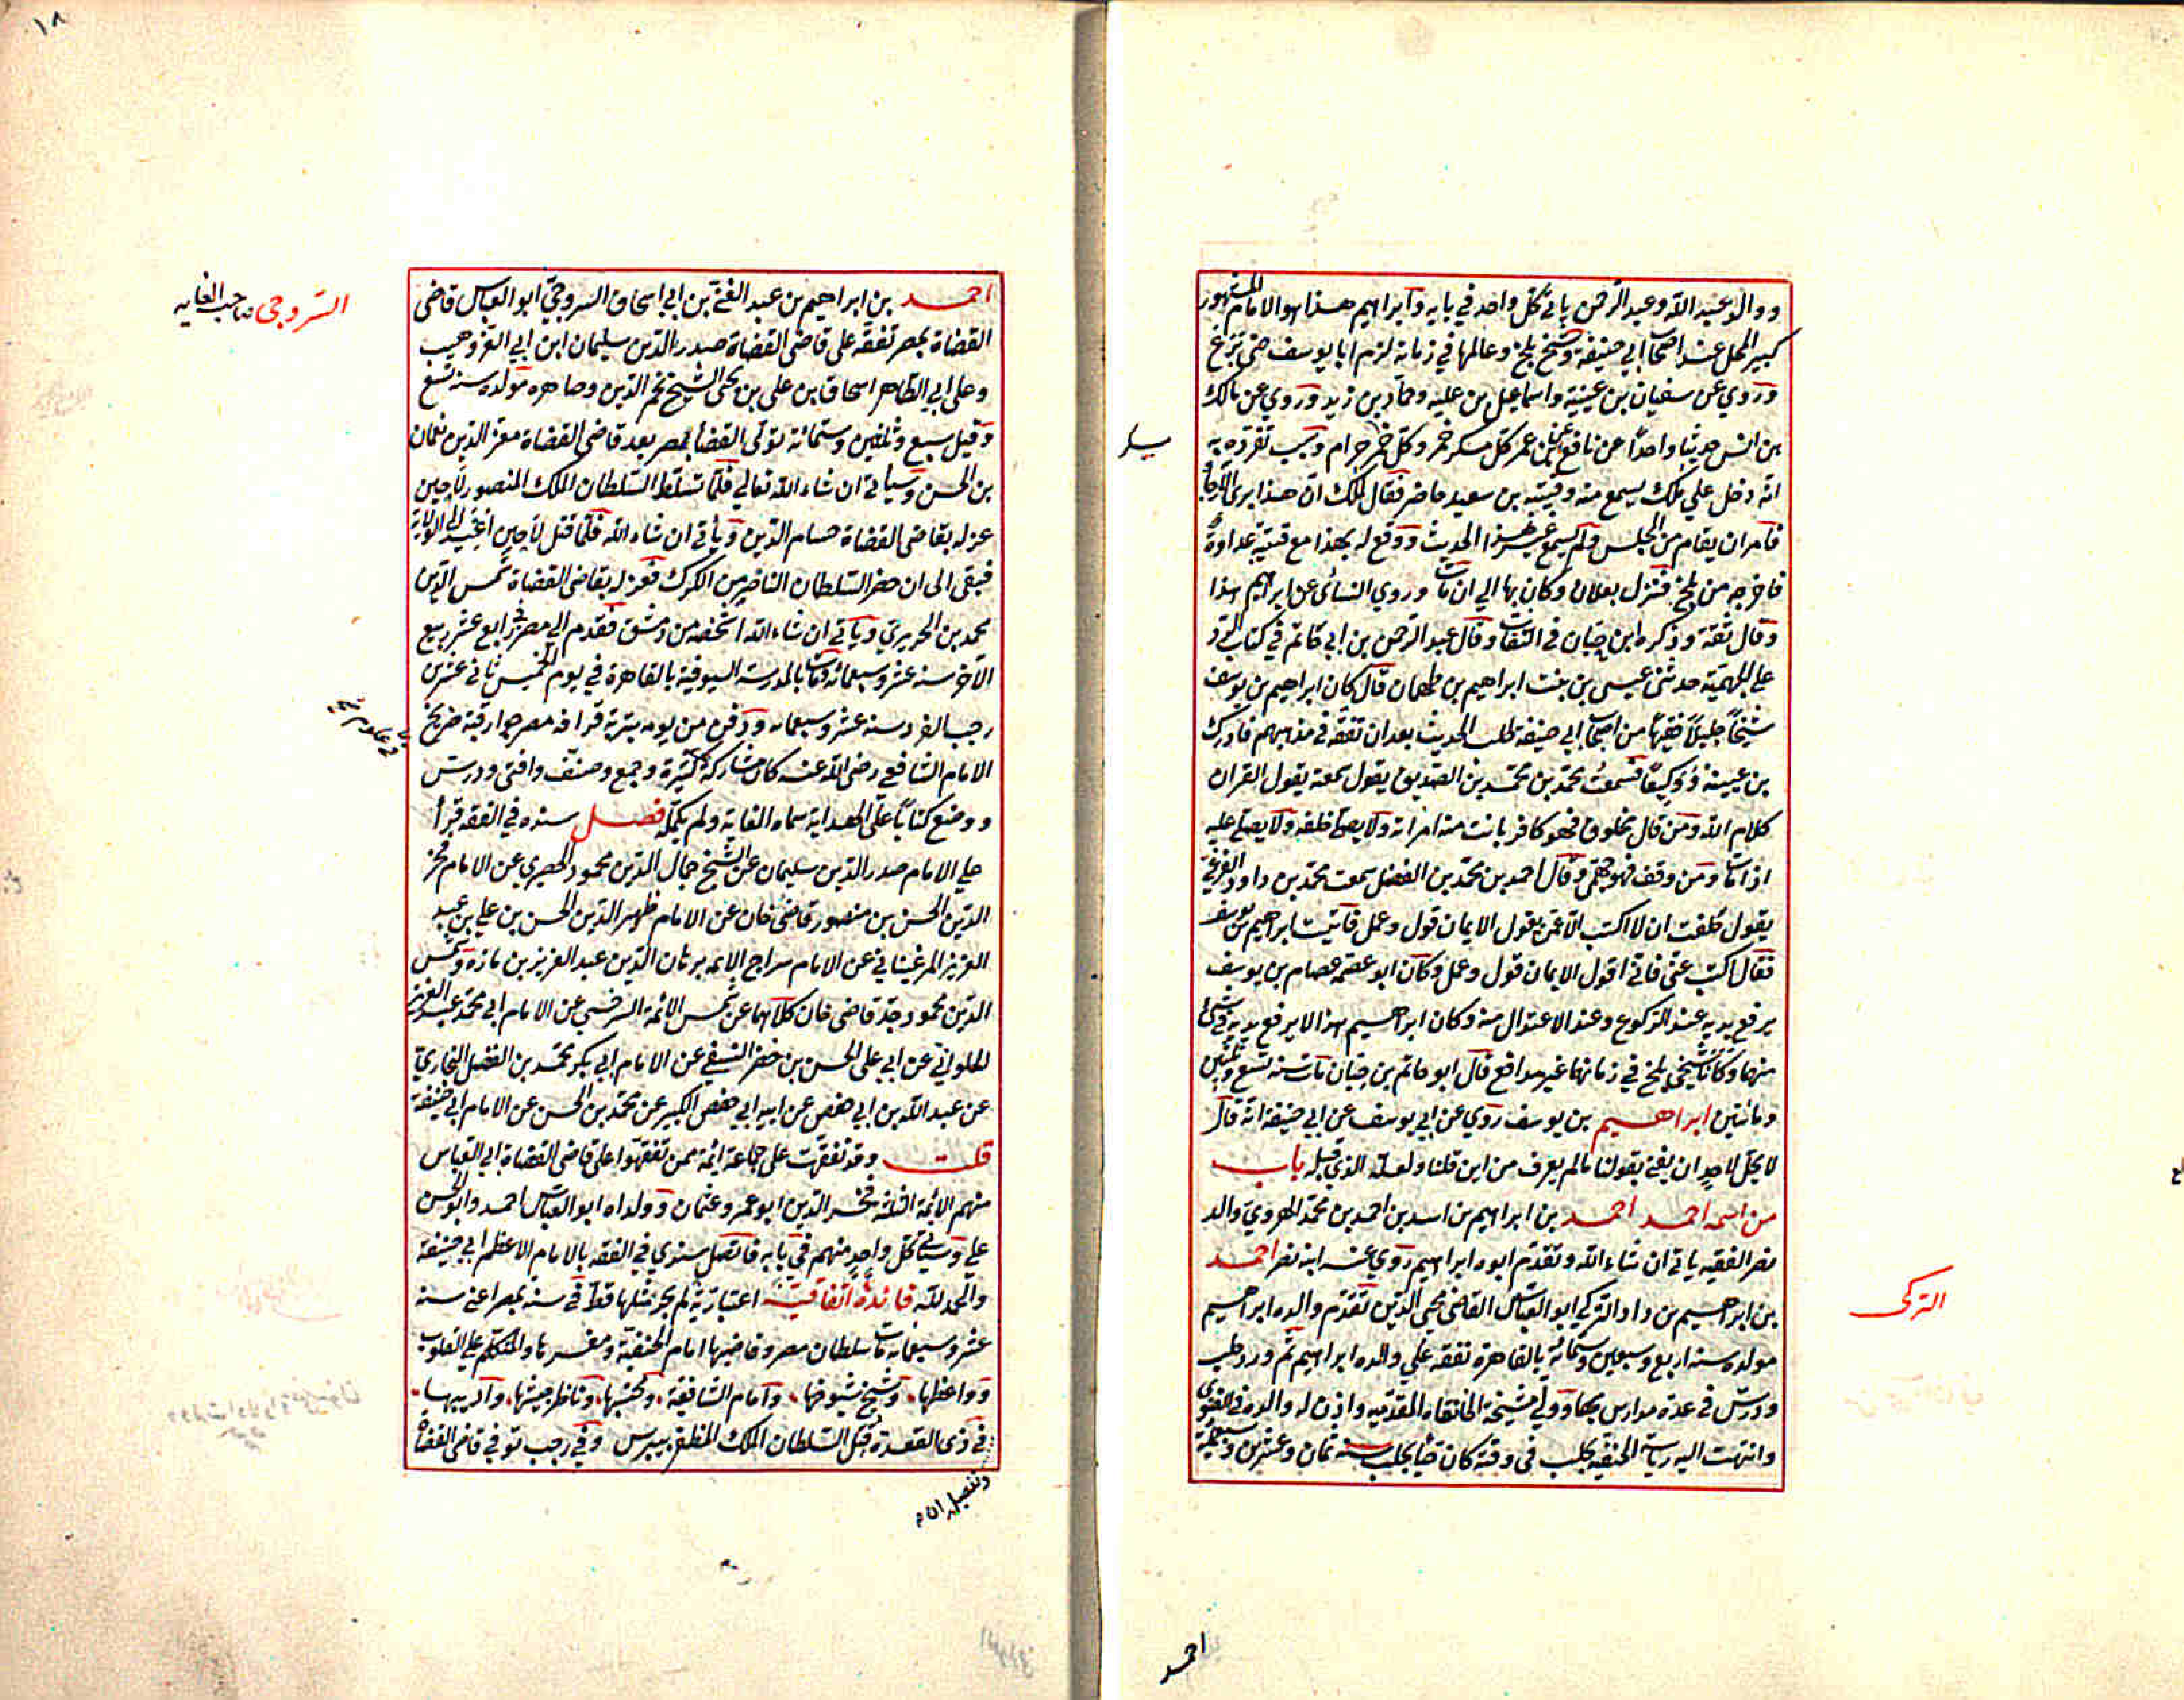 ووالد عبد الله وعبد الرحمن ياتى كل واحد في بابه وابراهيم هذا هو الامام المشهور
كبير المحل عند اصحاب ابي حنيفة وشيخ بلخ وعالمها في زمانه لزم ابا يوسف حتى برع
وروي عن سفيان بن عيينة واسماعيل بن علية وحماد بن زيد وروي عن مالك
بن انس حديثا واحدا عن نافع عن ابن عمر كل مسكر خمر وكل خمر حرام وسبب تفرده به
انه دخل علي مالك يسمع منه وقتيبة بن سعيد حاضر فقال لمالك ان هذا يرى الارجاء
فامر ان يقام من المجلس ولم يسمع غير هذا الحديث ووقع له بهذا مع قتيبة عداوة
فاخرجه من بلخ فنزل بغلان وكان بها الي ان مات وروي النسائى عن ابراهيم هذا
وقال ثقة وذكره ابن حبان في الثقات وقال عبد الرحمن بن ابي حاتم في كتاب الرد
علي الجهمية حدثنى عيسى بن بنت ابراهيم بن طهمان قال كان ابراهيم بن يوسف
شيخا جليلا فقيها من اصحاب ابي حنيفة طلب الحديث بعد ان تفقه في مذهبهم فادرك
بن عيينة ووكيعا فسمعت محمد بن محمد بن الصديق يقول سمعته يقول القران
كلام الله ومن قال مخلوق فهو كافر بانت منه امراته ولا يصلى خلفه ولا يصلى عليه
اذا مات ومن وقف فهو جهمى وقال احمد بن محمد بن الفضل سمعت محمد بن داود الفرغى
يقول حلفت ان لا اكتب الا عمن يقول الايمان قول وعمل فاتيت ابراهيم بن يوسف
فقال اكتب عنى فاني اقول الايمان قول وعمل وكان ابو عصمة عصام بن يوسف
يرفع يديه عند الركوع وعند الاعتدال منه وكان ابراهيم هذا لا يرفع يديه في شئ
منهما وكانا شيخى بلخ في زمانهما غير مدافع قال ابو حاتم بن حبان مات سنة تسع وثلثين
ومائتين ابراهيم بن يوسف روي عن ابي يوسف عن ابي حنيفة انه قال
لا يحل لاحد ان يفتى بقولنا مالم يعرف من اين قلنا ولعله الذي قبله باب
من اسمه احمد احمد بن ابراهيم بن اسد بن احمد بن محمد الهروي والد
نصر الفقيه ياتى ان شاء الله وتقدم ابوه ابراهيم روي عنه ابنه نصر احمد
بن ابراهيم بن داود التركي ابو العباس القاضى محيى الدين تقدم والده ابراهيم
مولده سنة اربع وسبعين وستمائة بالقاهرة تفقه علي والده ابراهيم ثم ورد حلب
ودرس في عدة مدارس بها وولي مشيخة الخانقاه المقدمية واذن له والده في الفتوى
وانتهت اليه رياسة الحنفية بحلب في وقته كان حيا بحلب سنة ثمان وعشرين وسبعمائة
التركى
احمد
١٨
احمد بن ابراهيم بن عبد الغنى بن ابي اسحاق السروجى ابو العباس قاضى
القضاة بمصر تفقه على قاضى القضاة صدر الدين سليمان ابن ابي العز وهيب
وعلى ابي الطاهر اسحاق بن على بن يحيى الشيخ نجم الدين وصاهره مولده سنة تسع
وقيل سبع وثلثين وستمائة تولى القضا بمصر بعد قاضى القضاة معز الدين نعمان
بن الحسن وسياتى ان شاء الله تعالي فلما تسلط السلطان الملك المنصور لاجين
عزله بقاضى القضاة حسام الدين وياتى ان شاء الله فلما قتل لاجين اعيد الى الولاية
فبقى الى ان حضر السلطان الناصر من الكرك فعزله بقاضى القضاة شمس الدين
محمد بن الحريري وياتى ان شاء الله استحضره من دمشق فقدم الي مصر في رابع عشر ربيع
الآخر سنة عشر وسبعمائة ومات بالمدرسة السيوفية بالقاهرة في يوم الخميس ثاني عشرين
رجب الفرد سنة عشر وسبعمائه ودفن من يومه بتربة قرافة مصر جوار قبة ضريح
الامام الشافعى رضى الله عنه كان مشاركة كثيرة وجمع وصنف وافتى ودرس
ووضع كتابا على الهداية سماه الغاية ولم يكمله فصل سنده في الفقه قرأ
علي الامام صدر الدين سليمان عن الشيخ جمال الدين محمود الحصيري عن الامام فخر
الدين الحسن بن منصور قاضى خان عن الامام ظهير الدين الحسن بن علي بن عبد
العزيز المرغينانى عن الامام سراج الايمة برهان الدين عبد العزيز بن مازه وشمس
الدين محمود جد قاضى خان كلاهما عن شمس الائمة السرخسى عن الامام ابي محمد عبد العزيز
الحلوانى عن ابي على الحسن بن خضر النسفى عن الامام ابي بكر محمد بن الفضل البخاري
عن عبد الله بن ابي حفص عن ابيه ابي حفص الكبير عن محمد بن الحسن عن الامام ابي حنيفة
قلت وقد تفقهت على جماعة ائمة ممن تفقهوا على قاضى القضاة ابي العباس
منهم الائمة فخر الدين ابو عمرو عثمان وولداه ابو العباس احمد وابو الحسن
علي وسياتى كل واحد منهم في بابه فاتصل سندي في الفقه بالامام الاعظم ابي حنيفة
والحمد لله فائدة اتفاقية اعتبارية لم يجر مثلها قط في سنة بمصر اعنى سنة
عشر وسبعمائة مات سلطان مصر وقاضيها امام الحنفية ومفسرها والمتكلم على القلوب
وواعظها وشيخ شيوخها وامام الشافعية ومحتسبها وناظر جيشها واديبها
في ذى القعدة قتل السلطان الملك المظفر بيبرس وفي رجب توفي قاضى القضاة
السروجى صاحب الغايه